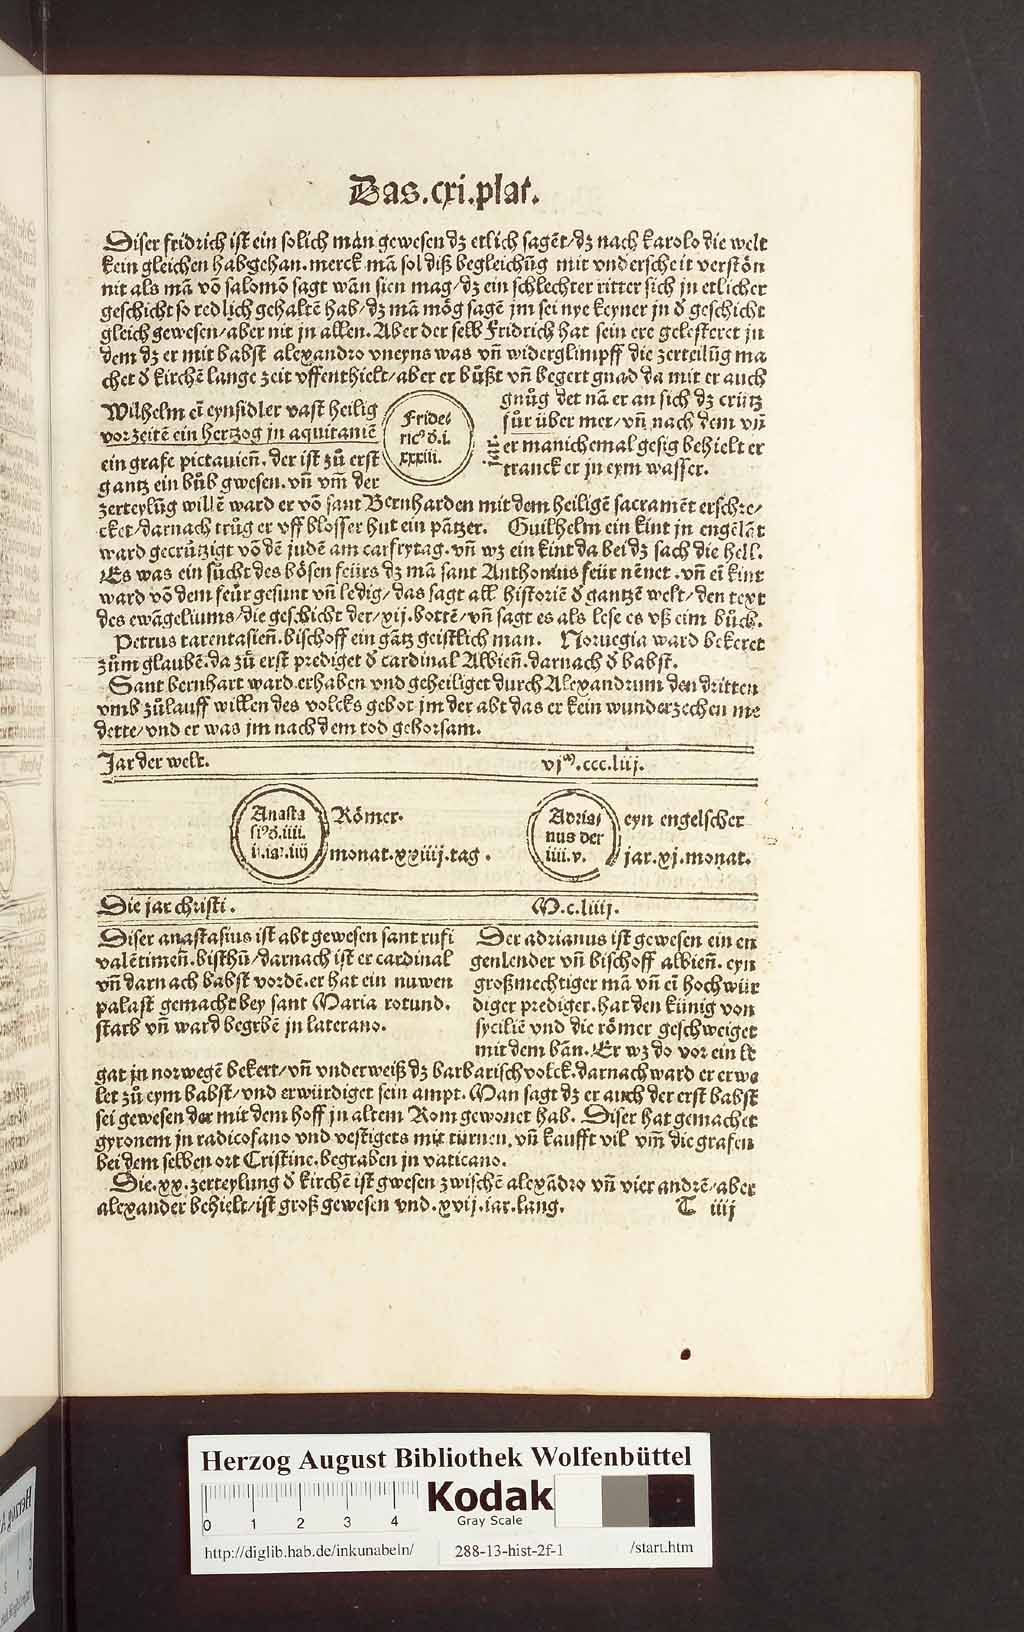 Das.cxi.plat.
Diser fridrich ist ein solich man gewesen dz etlich sagēt/dz nach karolo die welt
kein gleichen hab gehan.merck mā sol diß begleichūg mit vnderscheit verstōn
nit als mā vō salomō sagt wān sien mag/dz ein schlechter ritter sich jn etlicher
geschicht so redlich gehaltē hab/dz mā mög sagē jm sei nye keyner jn d̄ geschicht
gleich gewesen/aber nit jn allen.Aber der selb Fridrich hat sein ere gelesteret ju
dem dz er mit babst alexandro vneyns was vn̄ widerglimpff die zerteilūg ma
chet d̄ kirchē lange zeit vffenthielt/aber er bůßt vn̄ begert gnad da mit er auch
Wilhelm eī eynsidler vast heilig
vorzeitē ein hertzog jn aquitaniē
ein grafe pictauien̄.der ist zů erst
gantz ein bůb gwesen.vn̄ vm̄ der
Frides
ricꝰ d̄.i.
xxxiii.
iar.
gnůg det nā er an sich dz crütz
fůr über mer/vn̄ nach dem vn̄
er manichemal gesig behielt er
tranck er jn eym wasser.
zerteylūg willē ward er vō sant Bernharden mit dem heiligē sacramēt erschre/
cket/darnach trůg er vff blosser hut ein pātzer. Guilhelm ein kint jn engēlāt
ward gecrützigt vō dē judē am carfrytag.vn̄ wz ein kint da bei dz sach die hell.
Es was ein sücht des bösen feürs dz mā sant Anthonius feür nēnet.vn̄ eī kint
ward vō dem feür gesunt vn̄ ledig/das sagt all historiē d̄ gantzē welt/den text
des ewāgeliums/die geschicht der/xij.bottē/vn̄ sagt es als lese es vß eim bůch.
Petrus tarentasien̄.bischoff ein gātz geistlich man. Noruegia ward bekeret
zům glaubē.da zů erst prediget d̄ cardinal Albien̄.darnach d̄ babst.
Sant bernhart ward erhaben vnd geheiliget durch Alexandrum den dritten
vmb zůlauff willen des volcks gebot jm der abt das er kein wunderzechen me
dette/vnd er was jm nach dem tod gehorsam.
Jar der welt. vjᵐ.ccc.liij.
Anasta
siꝰ d̄.iiii.
ij.iar.iiij
Römer.
monat.xxiiij.tag.
Adria/
nus der
iiii.v.
eyn engelscher
jar.xj.monat.
Die jar christi. M.c.liiij.
Diser anastasius ist abt gewesen sant rufi
valētimen̄.bisthū/darnach ist er cardinal
vn̄ darnach babst vordē.er hat ein nuwen
palast gemacht bey sant Maria rotund.
starb vn̄ ward begrbē jn laterano.
Der adrianus ist gewesen ein en
genlender vn̄ bischoff albien̄.eyn
großmechtiger mā vn̄ eī hochwür
diger prediger.hat den künig von
syciliē vnd die römer geschweiget
mit dem bān.Er wz do vor ein le
gat jn norwegē bekert/vn̄ vnderweiß dz barbarisch volck.darnach ward er erwe
let zů eym babst/vnd erwürdiget sein ampt.Man sagt dz er auch der erst babst
sei gewesen der mit dem hoff jn altem Rom gewonet hab. Diser hat gemachet
gyronem jn radicofano vnd vestigets mit türnen.vn̄ kaufft vil vm̄ die grafen
bei dem selben ort Cristine.begraben jn vaticano.
Die.xx.zerteylung d̄ kirchē ist gwesen zwischē alexādro vn̄ vier andrē/aber
alexander behielt/ist groß gewesen vnd.xvij.iar.lang. T iiij
Herzog August Bibliothek Wolfenbüttel
0 1 2 3 4
Kodak
Gray Scale
http://diglib.hab.de/inkunabeln/ 288-13-hist-2f-1 /start.htm